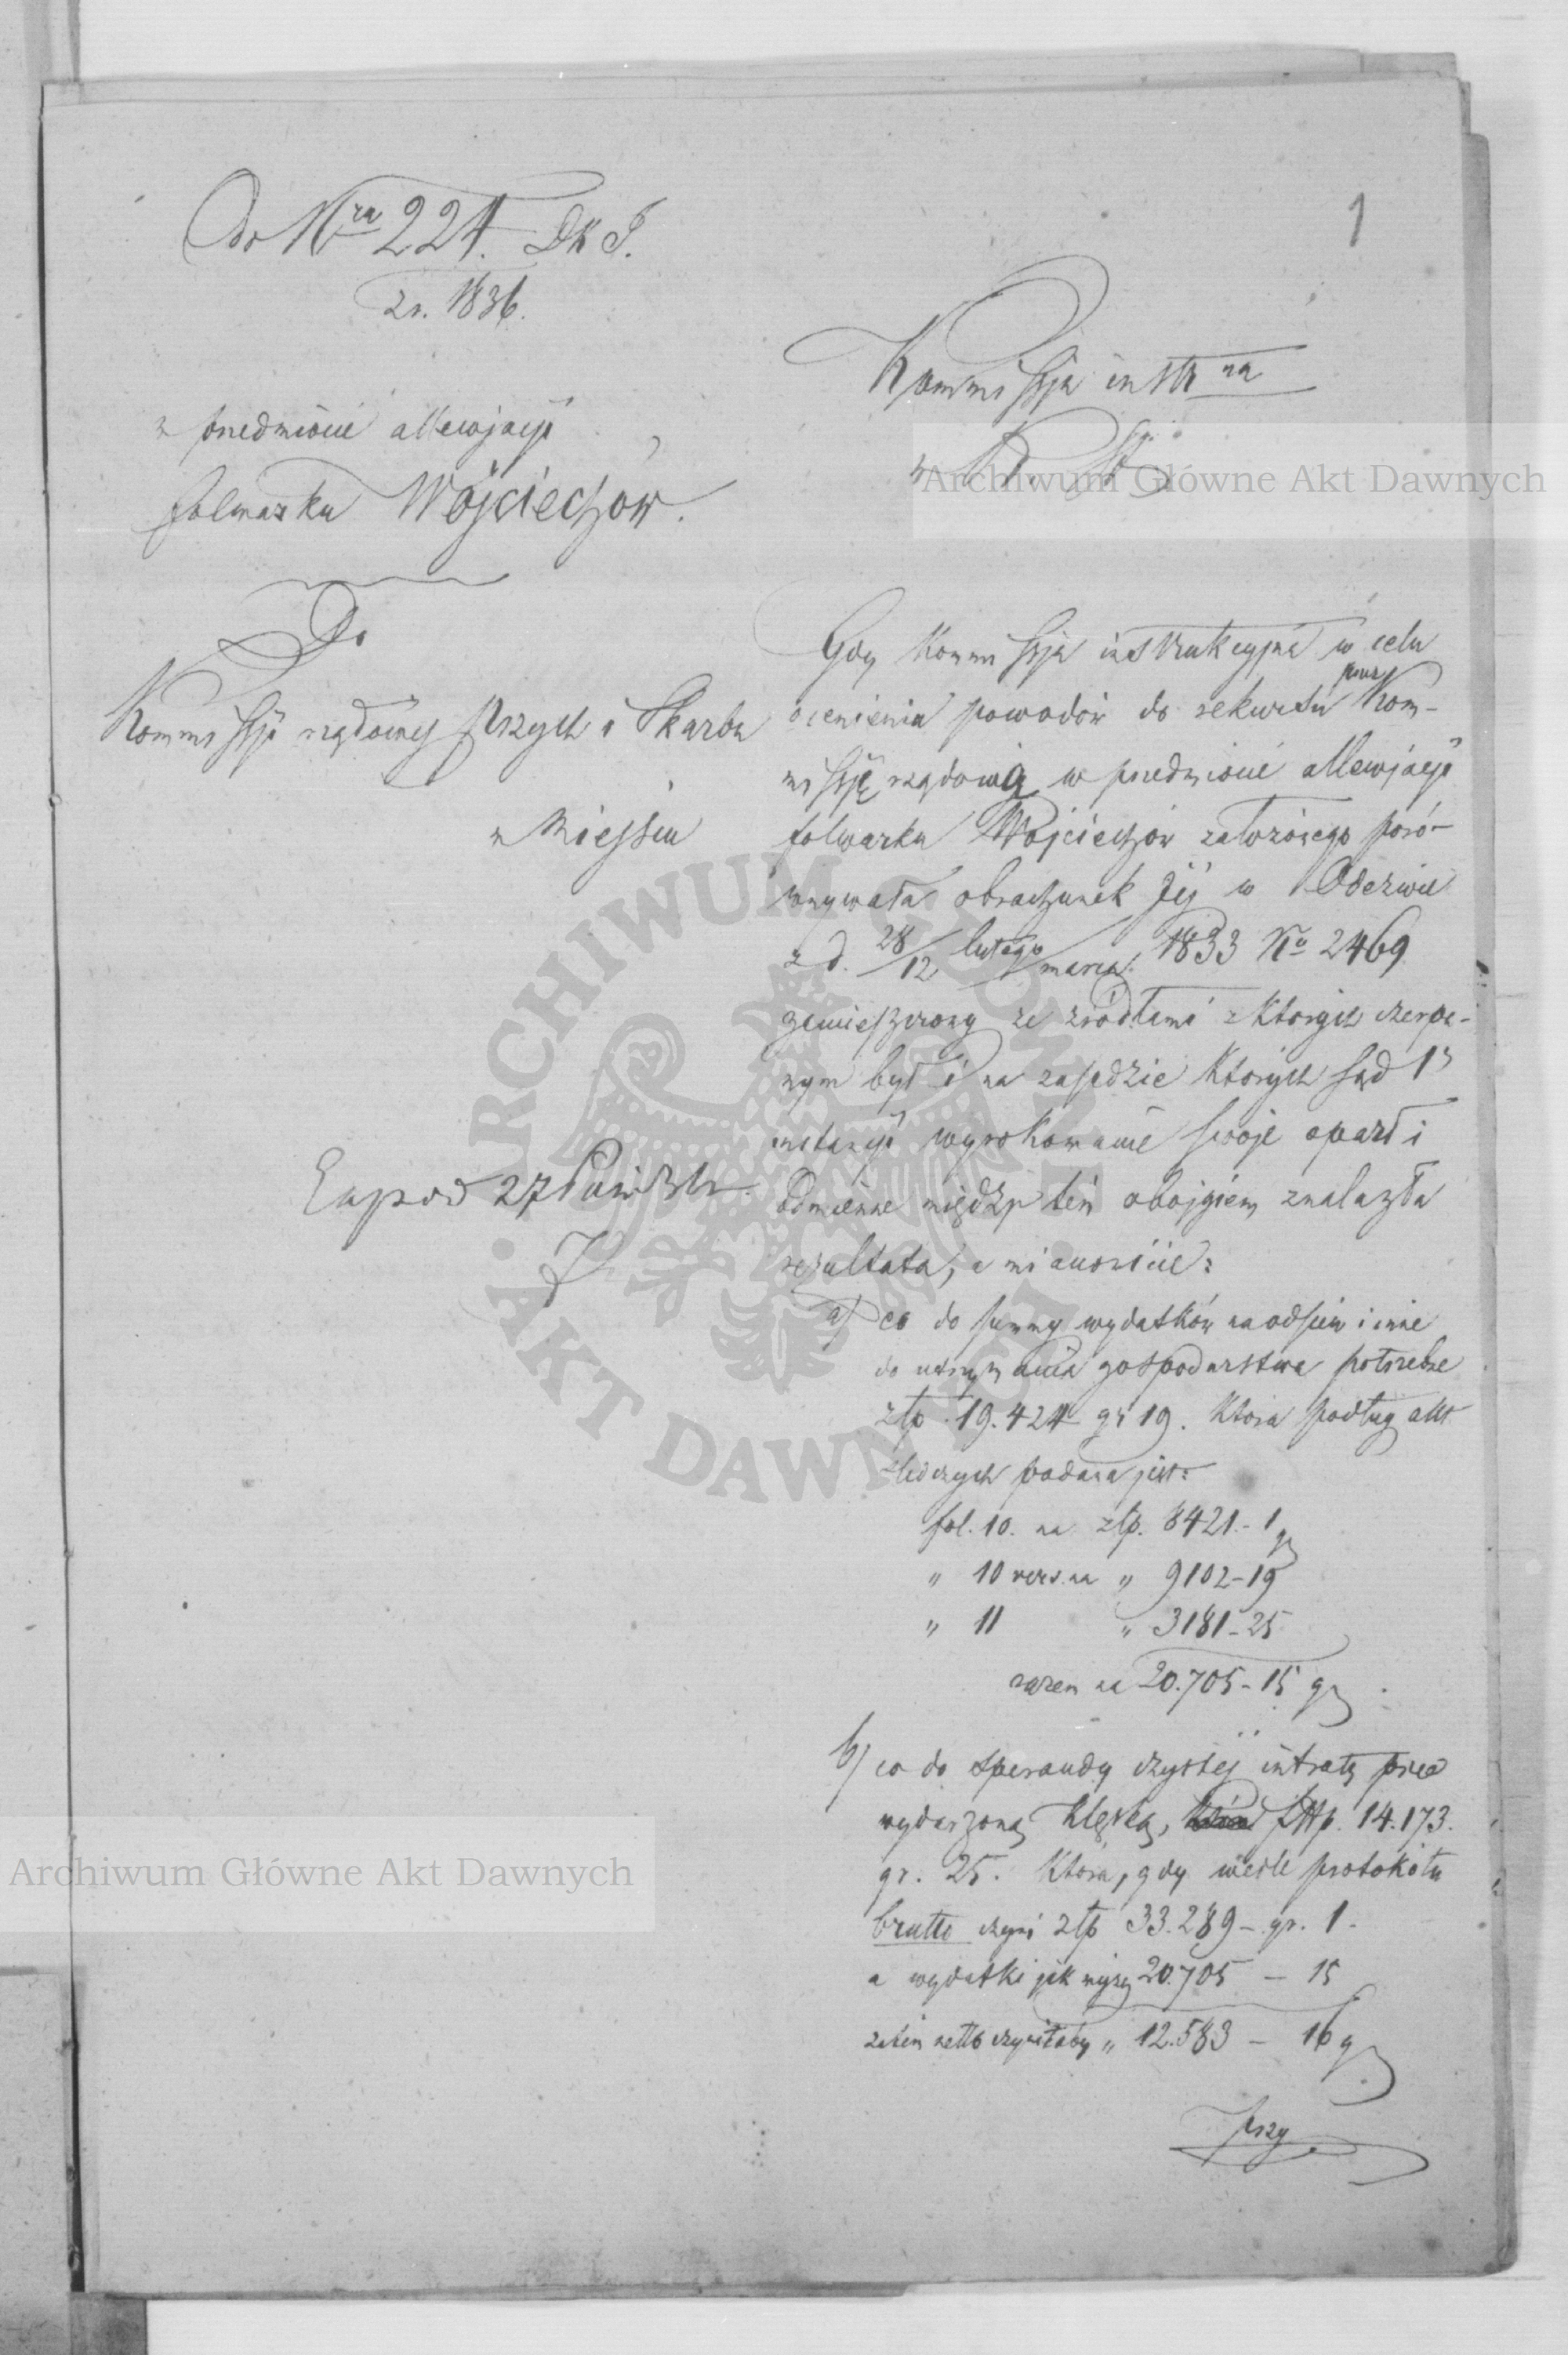 Do Nra 224. DK I.
z r. 1836.
1
w przedmiocie allewjacji
folwarku Wójciechów.
Kommissja instr na
w R. St.
Do
Kommissji rządowej Przych i Skarbu
w Miejscu
Exped 27 Paźdz
Gdy Kommissja instrukcyjna w celu
ocenienia powodów do rekursu przez Kom-
missję rządową w przedmiocie allewjacji
folwarku Wójciechów założonego poró-
wnywała obrachunek Jej w Odezwie
z d. 28/12 lutego/marca 1833 No 2469
zamieszczony ze źródłami z których czerpa-
nym był i na zasadzie których Sąd 1 
instancji wyrokowanie swoje oparł i
odmienne między tem obojgiem znalazła
rezultata, a mianowicie:
a) co do summy wydatków na odsiew i inne
do utrzymania gospodarstwa potrzebne
złp. 19.424 gr 19. która podług akt
śledczych podana jest:
fol. 10. na złp. 8421.- 1 gr
" 10 vers. na " 9102-19
" 11 " 3181-25
razem na 20.705-15 gr
b) co do sperandy czystej intraty przed
wydarzoną klęską, złtp. 14.173.
gr. 25. która, gdy wedle protokółu
brutto czyni złp 33.289 - gr. 1 -
a wydatki jak wyżej 20.705 - 15
zatem netto czyniłaby " 12.583 - 16 gr
przy
Archiwum Główne Akt Dawnych
Archiwum Główne Akt Dawnych
ARCHIWUM GŁÓWNE
AKT DAWNYCH